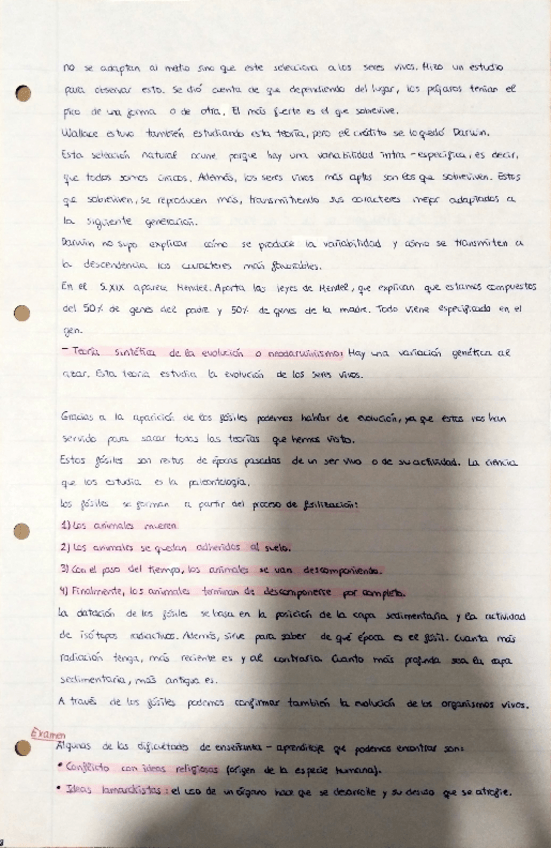 no se adaptan al medio sino que este selecciona a los seres vivos. Hizo un estudio
para observar esto. Se dió cuenta de que dependiendo del lugar, los pájaros tenían el
pico de una forma o de otra. El más fuerte es el que sobrevive.
Wallace estuvo también estudiando esta teoría, pero el crédito se lo quedó Darwin.
Esta selección natural ocurre porque hay una variabilidad intra-específica, es decir,
que todos somos únicos. Además, los seres vivos más aptos son los que sobreviven. Estos
que sobreviven, se reproducen más, transmitiendo sus caracteres mejor adaptados a
la siguiente generación.
Darwin no supo explicar cómo se produce la variabilidad y cómo se transmiten a
la descendencia los caracteres más favorables.
En el S.XIX aparece Mendel. Aporta las leyes de Mendel, que explican que estamos compuestos
del 50% de genes del padre y 50% de genes de la madre. Todo viene especificado en el
gen.
- Teoría sintética de la evolución o neodarwinismo: Hay una variación genética al
azar. Esta teoría estudia la evolución de los seres vivos.
Gracias a la aparición de los fósiles podemos hablar de evolución, ya que estos nos han
servido para sacar todas las teorías que hemos visto.
Estos fósiles son restos de épocas pasadas de un ser vivo o de su actividad. La ciencia
que los estudia es la paleontología.
Los fósiles se forman a partir del proceso de fosilización:
1) Los animales mueren.
2) Los animales se quedan adheridos al suelo.
3) Con el paso del tiempo, los animales se van descomponiendo.
4) Finalmente, los animales terminan de descomponerse por completo.
La datación de los fósiles se basa en la posición de la capa sedimentaria y la actividad
de isótopos radiactivos. Además, sirve para saber de qué época es el fósil. Cuanta más
radiación tenga, más reciente es y al contrario cuanto más profunda sea la capa
sedimentaria, más antigua es.
A través de los fósiles podemos confirmar también la evolución de los organismos vivos.
Examen
Algunas de las dificultades de enseñanza - aprendizaje que podemos encontrar son:
• Conflicto con ideas religiosas (origen de la especie humana).
• Ideas lamarckistas: el uso de un órgano hace que se desarrolle y su desuso que se atrofie.